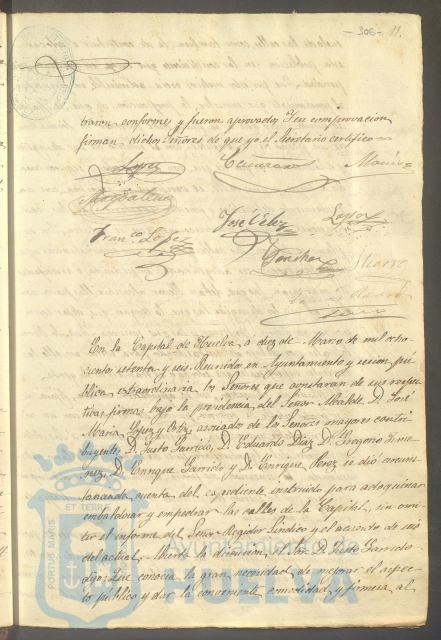 - 306 - 11.
traron conformes y fueron aprovados. Y en comprovacion
firman dichos Señores de que yo el Secretario certifico
Lopez
Magdalena
José Velez
Franco. Lopez
Sanchez
En la Capital de Huelva á diez de Marzo de mil ocho
cientos setenta y seis Reunidos en Ayuntamiento y sesion pú
blica extraordinaria los Señores que constaran de sus respec
tivas firmas bajo la presidencia del Señor Alcalde D. José
Maria Lopez y Ortiz, asociados de los Señores mayores contri
buyentes, D. Justo Garrido, D. Eduardo Diaz, D. Gregorio Jime
nez, D. Enrique Garrido y D. Enrique Perez se dió circuns
tanciada cuenta del expediente instruido para adoquinar
embaldosar y empedrar las calles de la Capital, sin omi
tir el informe del Señor Regidor Síndico y el acuerdo de
del actual. la discusion, el Sr. D. Justo Garrido
dijo: Que conocia la gran necesidad de mejorar el aspec
to publico y dar la conveniente comodidad y firmeza al
PORTUS MARIS
ET TERRÆ
Ayuntamiento de
HUELVA